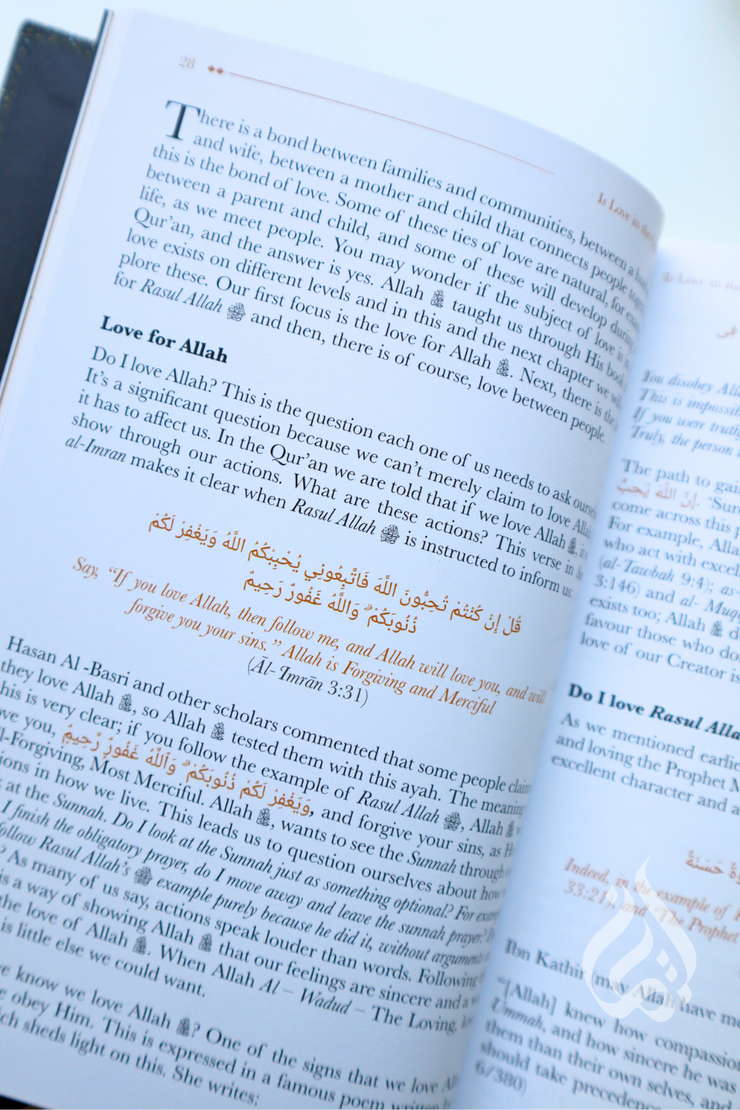 28
Is Love in the
There is a bond between families and communities, between a
and wife, between a mother and child that connects people
this is the bond of love. Some of these ties of love are natural, for
between a parent and child, and some of these will develop
life, as we meet people. You may wonder if the subject of love is
Qur'an, and the answer is yes. Allah ﷻ taught us through His book
love exists on different levels and in this and the next chapter we
plore these. Our first focus is the love for Allah ﷻ. Next, there is the
for Rasul Allah ﷺ and then, there is of course, love between people.
Love for Allah
Do I love Allah? This is the question each one of us needs to ask
It's a significant question because we can't merely claim to love Allah
it has to affect us. In the Qur'an we are told that if we love Allah ﷻ,
show through our actions. What are these actions? This verse in
al-Imran makes it clear when Rasul Allah ﷺ is instructed to inform us:
قُلْ إِنْ كُنْتُمْ تُحِبُّونَ اللَّهَ فَاتَّبِعُونِي يُحْبِبْكُمُ اللَّهُ وَيَغْفِرْ لَكُمْ
ذُنُوبَكُمْ ۗ وَاللَّهُ غَفُورٌ رَحِيمٌ
Say, "If you love Allah, then follow me, and Allah will love you, and will
forgive you your sins." Allah is Forgiving and Merciful
(Āl-'Imrān 3:31)
Hasan Al -Basri and other scholars commented that some people claim
they love Allah ﷻ, so Allah ﷻ tested them with this ayah. The meaning
this is very clear; if you follow the example of Rasul Allah ﷺ, Allah ﷻ
you, وَيَغْفِرْ لَكُمْ ذُنُوبَكُمْ ۗ وَاللَّهُ غَفُورٌ رَحِيمٌ, and forgive your sins, as He
Forgiving, Most Merciful. Allah ﷻ, wants to see the Sunnah through
in how we live. This leads us to question ourselves about how
at the Sunnah. Do I look at the Sunnah just as something optional? For
I finish the obligatory prayer, do I move away and leave the sunnah prayer?
follow Rasul Allah's ﷺ example purely because he did it, without argument
? As many of us say, actions speak louder than words. Following
is a way of showing Allah ﷻ that our feelings are sincere and a
the love of Allah ﷻ. When Allah Al – Wadud – The Loving,
is little else we could want.
we know we love Allah ﷻ? One of the signs that we love
obey Him. This is expressed in a famous poem written
sheds light on this. She writes:
Is Love in the
في
You disobey
This is impossible
If you were
Truly, the person
The path to
إِنَّ اللَّهَ يُحِبُّ
come across this
For example,
who act with
(al-Tawbah 9:4);
3:146) and al-
exists too; Allah ﷻ
favour those who
love of our Creator is
Do I love Rasul
As we mentioned
and loving the Prophet
excellent character and
حَسَنَةٌ
Indeed, in the example of
33:21), and "The Prophet
Ibn Kathir (may Allah have
"[Allah] knew how
Ummah, and how sincere he was
them than their own selves, and
should take
6/380)